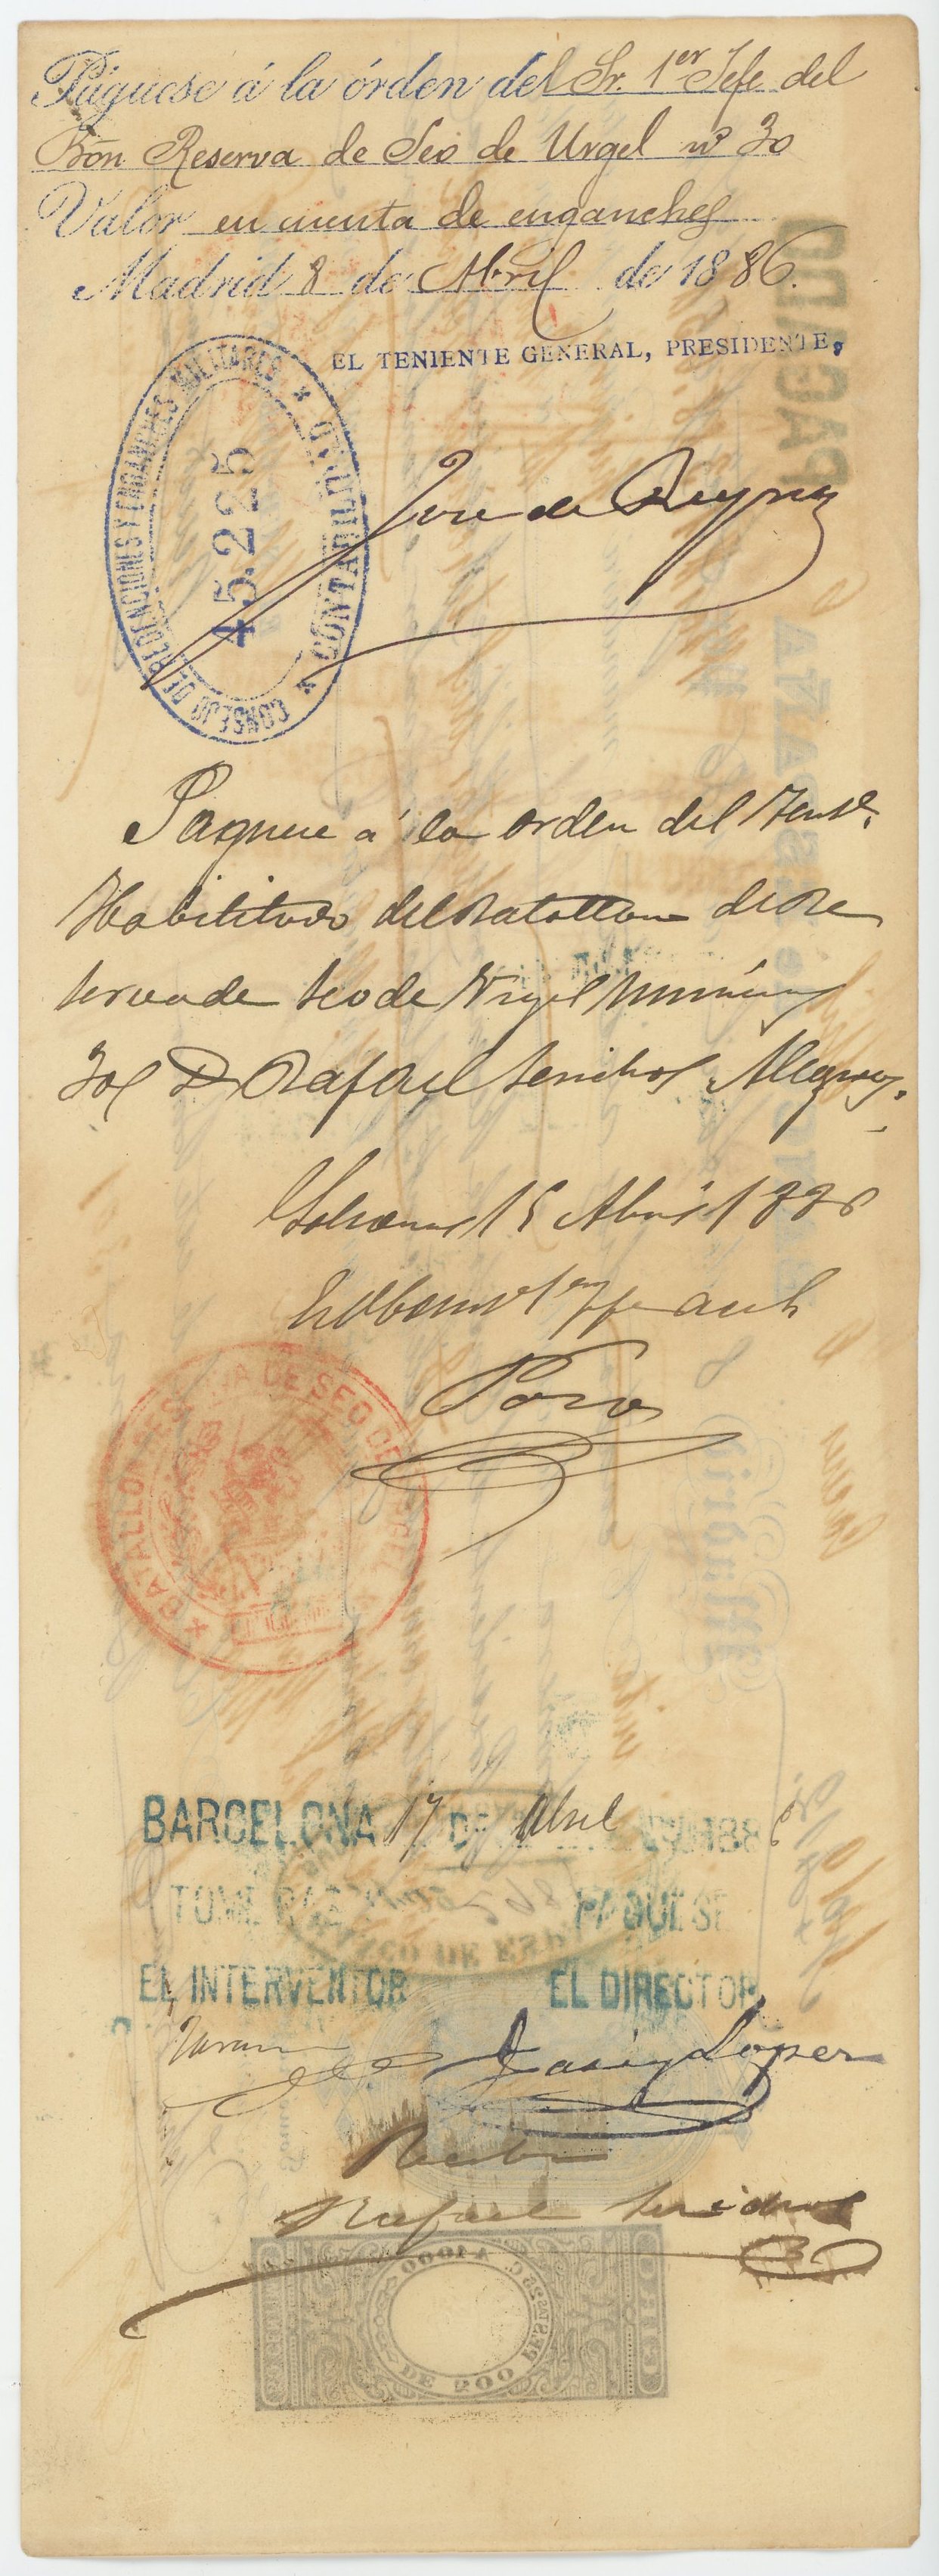 Páguese á la órden del Sr. 1er Jefe del
Bón Reserva de Seo de Urgel nº 30
Valor en cuenta de enganches
Madrid 8 de Abril de 1886.
EL TENIENTE GENERAL, PRESIDENTE,
CONSEJO DE REDENCIONES Y ENGANCHES MILITARES
CONTABILIDAD
45.225
José de Reyna
Paguese á la orden del Tente.
Habilitado del Batallon de Re
serva de Seo de Urgel numero
30 D Rafael Alegre.
15 Abril 1886
1er Jefe
Pozo
BATALLON RESERVA DE SEO DE URGEL
BARCELONA 17 DE Abril DE 1886
TOME RAZON PAGUESE
EL INTERVENTOR EL DIRECTOR
Lopez
Recibi
Rafael